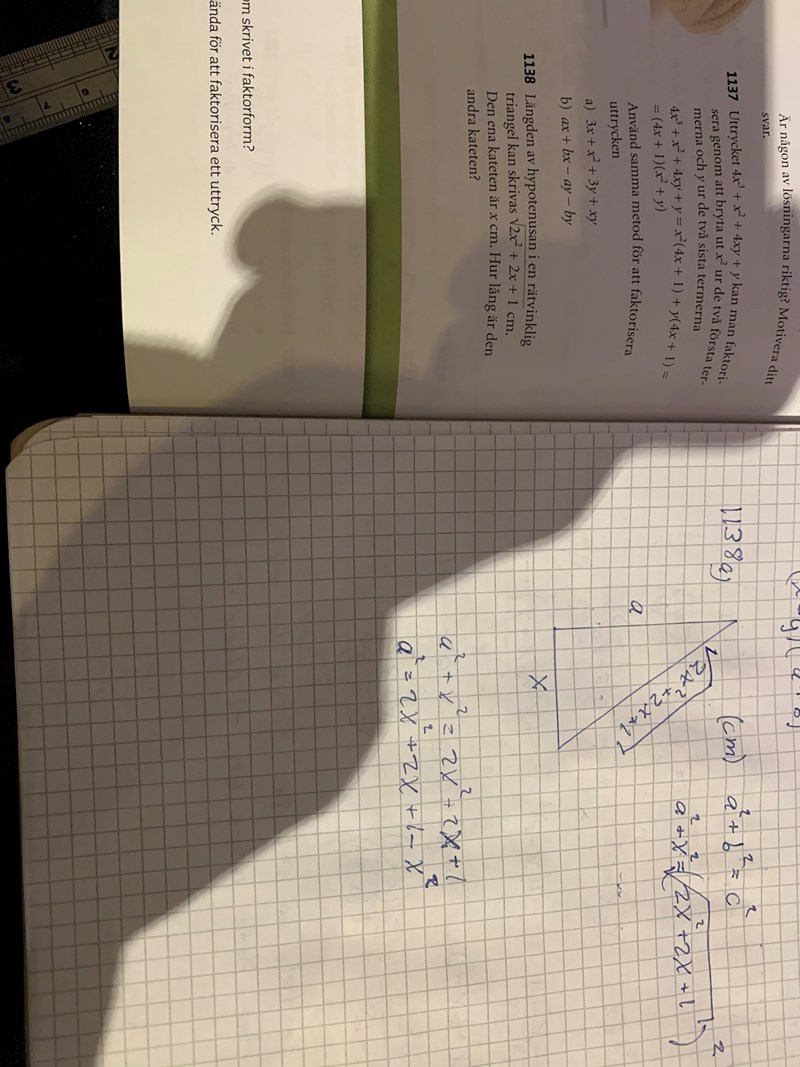 Är någon av lösningarna riktig? Motivera ditt
svar.
1137 Uttrycket 4x³ + x² + 4xy + y kan man faktori-
sera genom att bryta ut x² ur de två första ter-
merna och y ur de två sista termerna
4x³ + x² + 4xy + y = x²(4x + 1) + y(4x + 1) =
= (4x + 1)(x² + y)
Använd samma metod för att faktorisera
uttrycken
a) 3x + x² + 3y + xy
b) ax + bx − ay − by
1138 Längden av hypotenusan i en rätvinklig
triangel kan skrivas √2x² + 2x + 1 cm.
Den ena kateten är x cm. Hur lång är den
andra kateten?
om skrivet i faktorform?
ända för att faktorisera ett uttryck.
1138a)
(cm)
a² + b² = c²
a² + x² = (√2x² + 2x + 1)²
a
√2x²+2x+1
x
a² + x² = 2x² + 2x + 1
a² = 2x² + 2x + 1 − x²
2
3
6
7
8